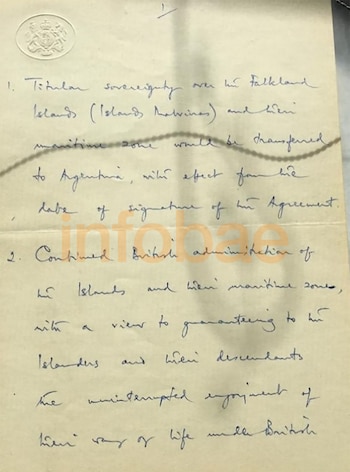 1
1. Titular sovereignty over the Falkland
Islands (Islands Malvinas) and their
maritime zone would be transferred
to Argentina, with effect from the
date of signature of the Agreement.
infobae
2. Continued British administration of
the Islands and their maritime zone,
with a view to guaranteeing to the
Islanders and their descendants
the uninterrupted enjoyment of
their way of life under British